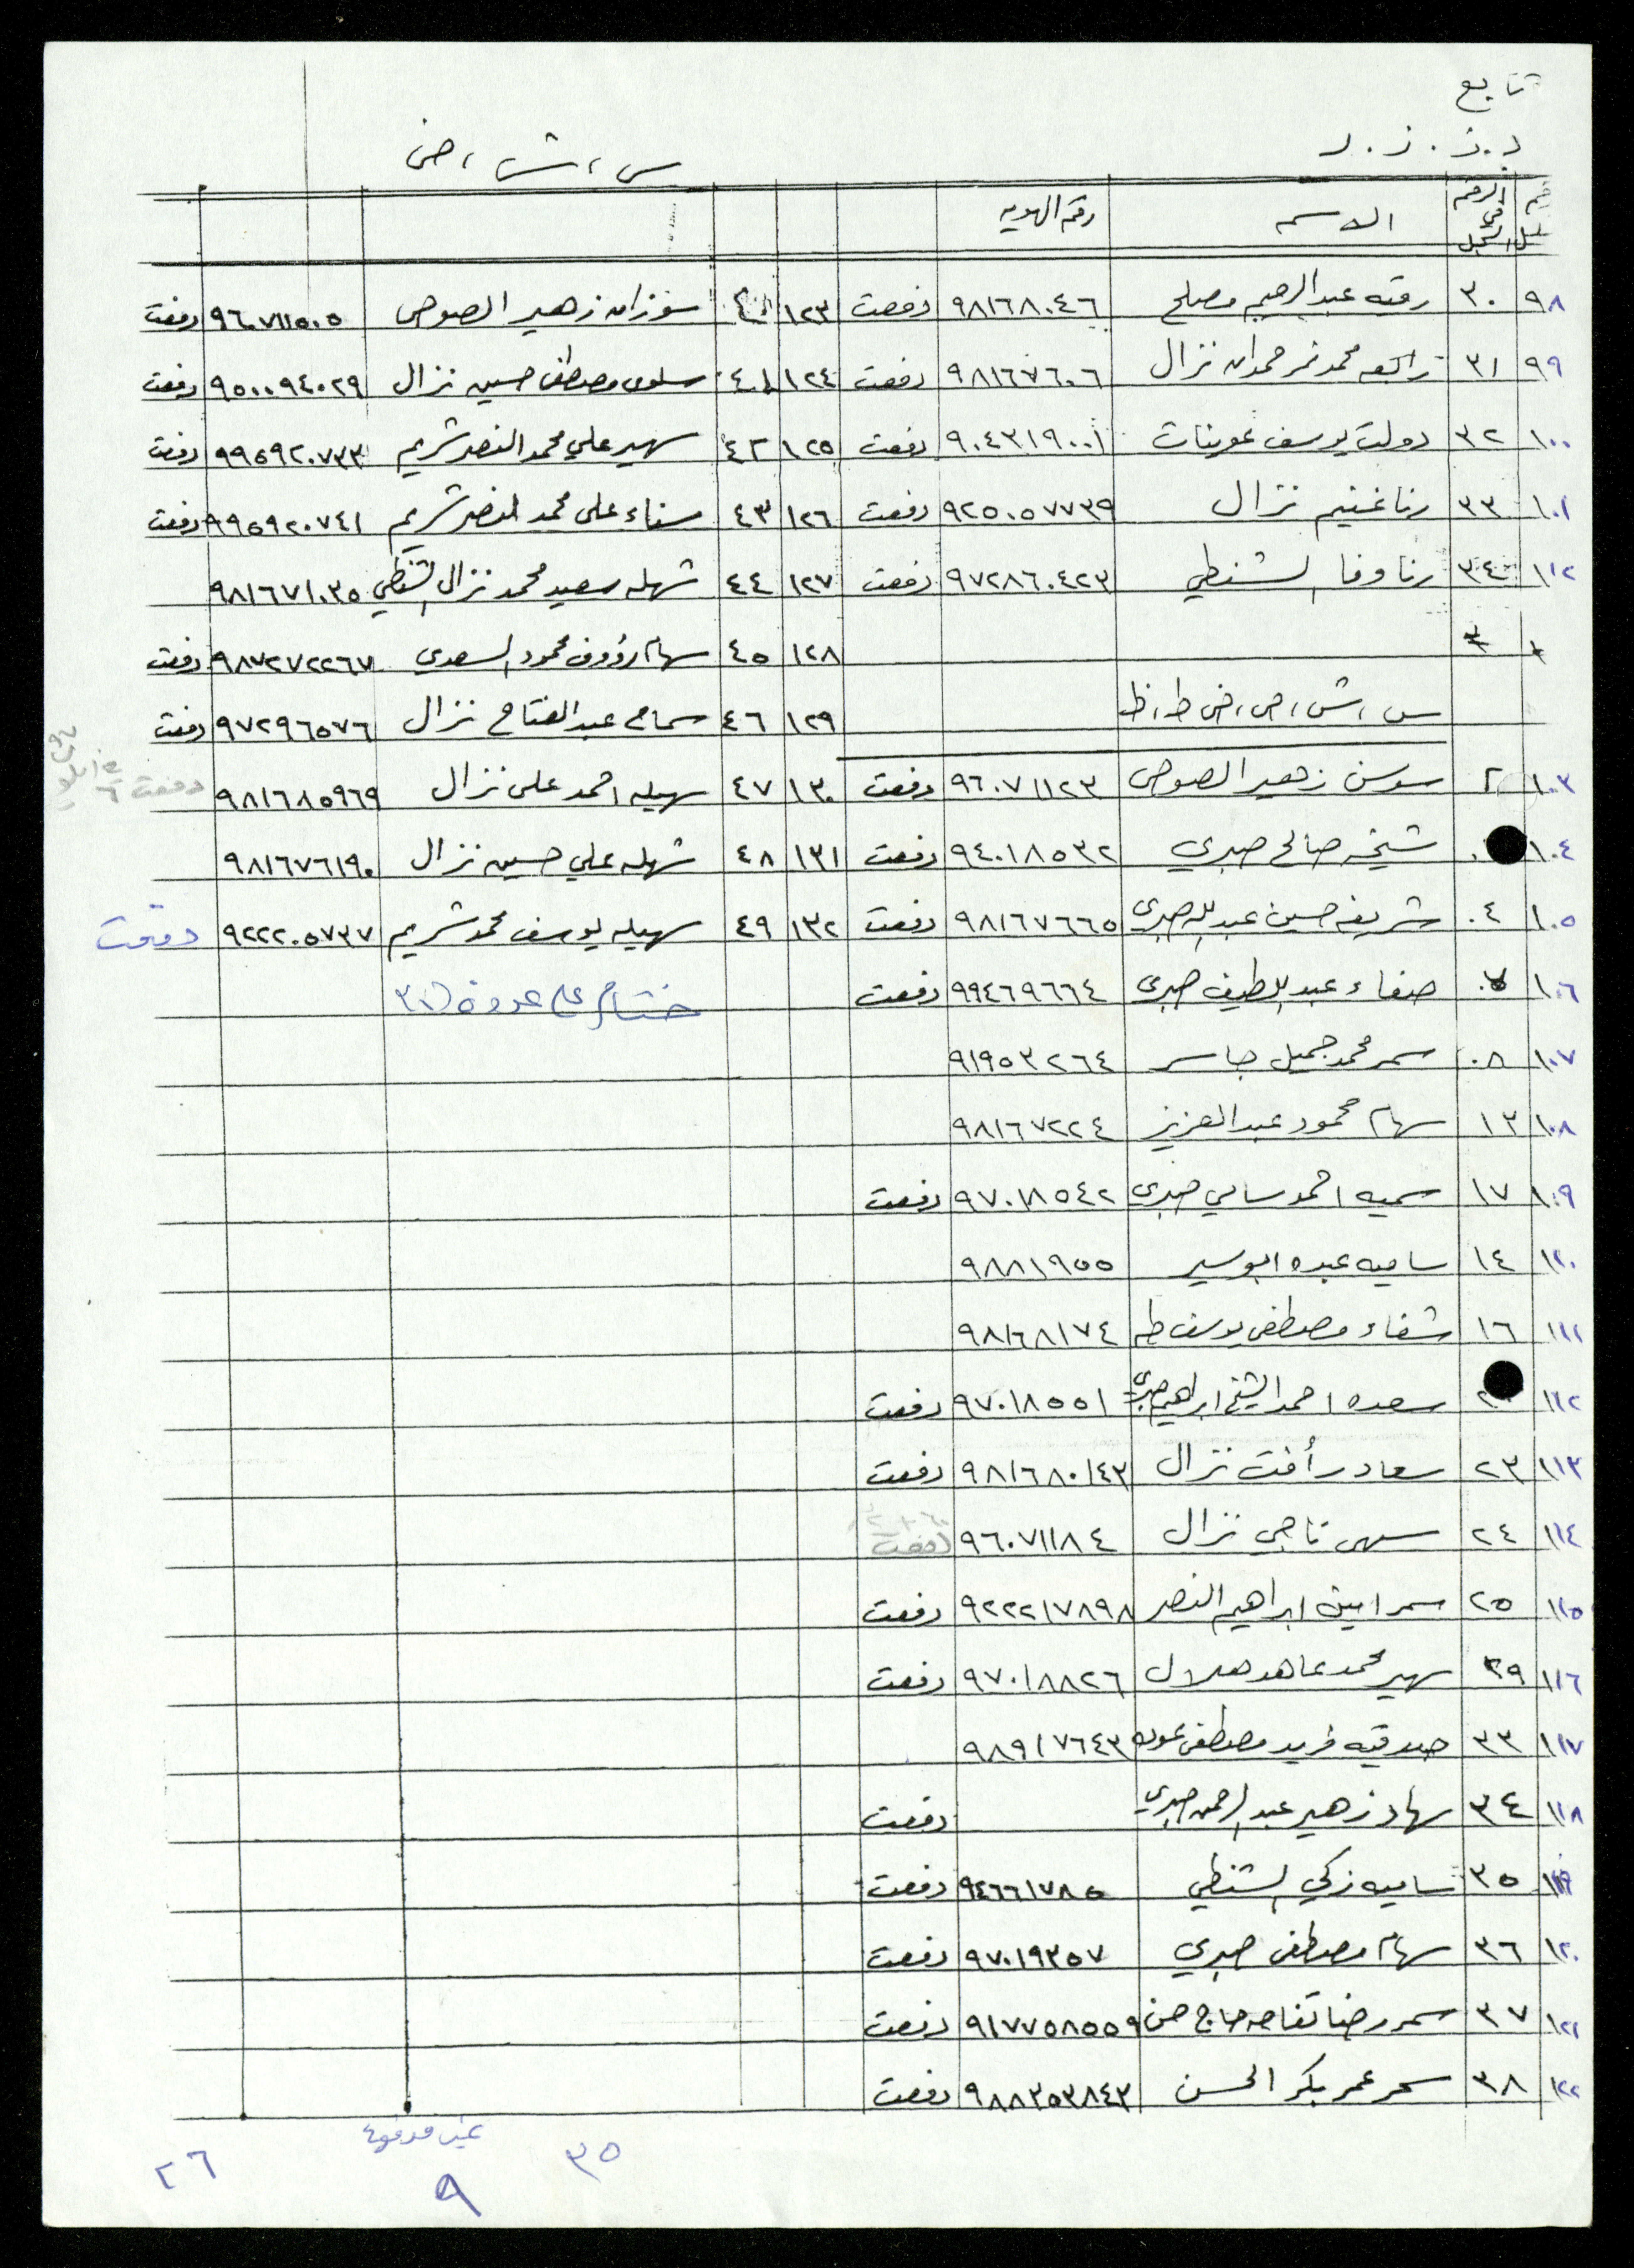 تابع
د . ذ . ر . ز
س ، ش ، ص
الرقم في السجل الاسم رقم الهويه
٩٨ ٣٠ رقيه عبد الرحيم مصلح ٩٨١٦٨٠٤٦ دفعت ١٢٣ ٤٠ سوزان زهير الصوص ٩٦٠٧١١٥٠٥ دفعت
٩٩ ٣١ رابعه محمد نمر حمدان نزال ٩٨١٦٧٦٠٦ دفعت ١٢٤ ٤١ سلوى مصطفى حسين نزال ٩٥٠٠٩٤٠٢٩ دفعت
١٠٠ ٣٢ دولت يوسف عوينات ٩٠٤٣١٩٠٠١ دفعت ١٢٥ ٤٢ سهير علي محمد النصر شريم ٩٩٥٩٢٠٧٣٣ دفعت
١٠١ ٣٣ رنا غنيم نزال ٩٢٥٠٥٧٧٣٩ دفعت ١٢٦ ٤٣ سناء على محمد النصر شريم ٩٩٥٩٢٠٧٤١ دفعت
١٠٢ ٣٤ رنا وفا الشنطي ٩٧٢٨٦٠٤٢٣ دفعت ١٢٧ ٤٤ شهله سعيد محمد نزال الشنطي ٩٨١٦٧١٠٣٥
١٢٨ ٤٥ سهام رؤوف محمود السعدي ٩٨٧٢٧٢٢٦٧ دفعت
س ، ش ، ص ، ض ، ط ، ظ ١٢٩ ٤٦ سماح عبد الفتاح نزال ٩٧٢٩٦٥٧٦ دفعت
١٠٣ ٢ سوسن زهير الصوص ٩٦٠٧١١٢٣ دفعت ١٣٠ ٤٧ سهيله احمد على نزال ٩٨١٦٨٥٩٦٩ دفعت
١٠٤ شيخه صالح صبري ٩٤٠١٨٥٣٢ دفعت ١٣١ ٤٨ شهله علي حسين نزال ٩٨١٦٧٦١٩٠
١٠٥ ٠٤ شريفه حسين عبد الله صبري ٩٨١٦٧٦٦٥ دفعت ١٣٢ ٤٩ سهيله يوسف محمد شريم ٩٢٢٢٠٥٧٣٧ دفعت
١٠٦ صفاء عبد اللطيف صبري ٩٩٤٦٩٦٦٤ دفعت
١٠٧ ٠٨ سمر محمد جميل جاسر ٩١٩٥٣٢٦٤
١٠٨ ١٣ سهام محمود عبد العزيز ٩٨١٦٧٢٢٤
١٠٩ ١٧ سميه احمد سامي صبري ٩٧٠١٨٥٤٢ دفعت
١١٠ ١٤ ساميه عبده ابو سير ٩٨٨١٩٥٥
١١١ ١٦ شفاء مصطفى يوسف طه ٩٨١٦٨١٧٤
١١٢ سعده احمد الشيخ ابراهيم صبري ٩٧٠١٨٥٥١ دفعت
١١٣ ٢٣ سعاد رأفت نزال ٩٨١٦٨٠١٤٣ دفعت
١١٤ ٢٤ سهى ناجي نزال ٩٦٠٧١١٨٤ دفعت
١١٥ ٢٥ سمر امين ابراهيم النصر ٩٢٢٢١٧٨٩٨ دفعت
١١٦ ٢٩ سهير محمد عاهد هلال ٩٧٠١٨٨٢٦ دفعت
١١٧ ٣٣ صدقيه فريد مصطفى عوده ٩٨٩١٧٦٤٣
١١٨ ٣٤ سهاد زهير عبد الرحمن صبري دفعت
١١٩ ٣٥ ساميه زكي الشنطي ٩٤٦٦١٧٨٥ دفعت
١٢٠ ٣٦ سهام مصطفى صبري ٩٧٠١٩٣٥٧ دفعت
١٢١ ٣٧ سمر رضا تفاحه حاج حسن ٩١٧٧٥٨٥٥٩ دفعت
١٢٢ ٣٨ سحر عمر بكر الحسن ٩٨٨٣٥٣٨٤٣ دفعت
٣٥ غير مدفوع ٩ ٢٦